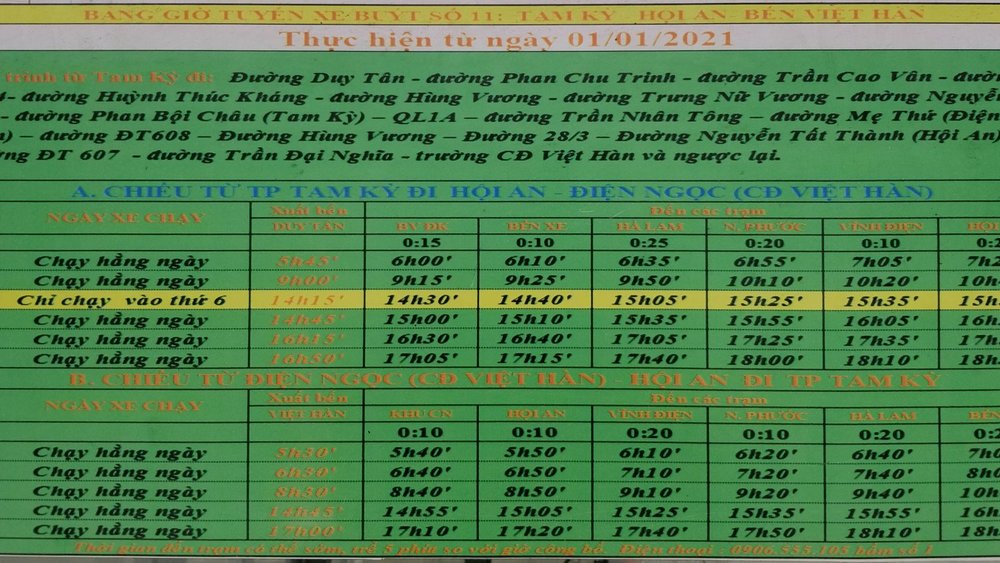 BẢNG GIỜ TUYẾN XE BUÝT SỐ 11: TAM KỲ - HỘI AN - BẾN VIỆT HÀN
Thực hiện từ ngày 01/01/2021
trình từ Tam Kỳ đi: Đường Duy Tân - đường Phan Chu Trinh - đường Trần Cao Vân - đường
4- đường Huỳnh Thúc Kháng - đường Hùng Vương - đường Trưng Nữ Vương - đường Nguyễn
- đường Phan Bội Châu (Tam Kỳ) – QL1A – đường Trần Nhân Tông – đường Mẹ Thứ (Điện
) – đường ĐT608 – Đường Hùng Vương – Đường 28/3 – Đường Nguyễn Tất Thành (Hội An)
ĐT 607 - đường Trần Đại Nghĩa - trường CĐ Việt Hàn và ngược lại.
A. CHIỀU TỪ TP TAM KỲ ĐI HỘI AN - ĐIỆN NGỌC (CĐ VIỆT HÀN)
NGÀY XE CHẠY Xuất bến Đến các trạm
DUY TÂN BV ĐK BẾN XE HÀ LAM N. PHƯỚC VĨNH ĐIỆN
0:15 0:10 0:25 0:20 0:10
Chạy hằng ngày 5h45' 6h00' 6h10' 6h35' 6h55' 7h05'
Chạy hằng ngày 9h00' 9h15' 9h25' 9h50' 10h10' 10h20'
Chỉ chạy vào thứ 6 14h15' 14h30' 14h40' 15h05' 15h25' 15h35'
Chạy hằng ngày 14h45' 15h00' 15h10' 15h35' 15h55' 16h05'
Chạy hằng ngày 16h15' 16h30' 16h40' 17h05' 17h25' 17h35'
Chạy hằng ngày 16h50' 17h05' 17h15' 17h40' 18h00' 18h10'
B. CHIỀU TỪ ĐIỆN NGỌC (CĐ VIỆT HÀN) - HỘI AN ĐI TP TAM KỲ
NGÀY XE CHẠY Xuất bến Đến các trạm
VIỆT HÀN KHU CN HỘI AN VĨNH ĐIỆN N. PHƯỚC HÀ LAM BẾN
0:10 0:10 0:20 0:10 0:20
Chạy hằng ngày 5h30' 5h40' 5h50' 6h10' 6h20' 6h40'
Chạy hằng ngày 6h30' 6h40' 6h50' 7h10' 7h20' 7h40'
Chạy hằng ngày 8h30' 8h40' 8h50' 9h10' 9h20' 9h40'
Chạy hằng ngày 14h45' 14h55' 15h05' 15h25' 15h35' 15h55'
Chạy hằng ngày 17h00' 17h10' 17h20' 17h40' 17h50' 18h10'
Thời gian đến trạm có thể sớm, trễ 5 phút so với giờ công bố. Điện thoại : 0906.555.105 bấm số 1